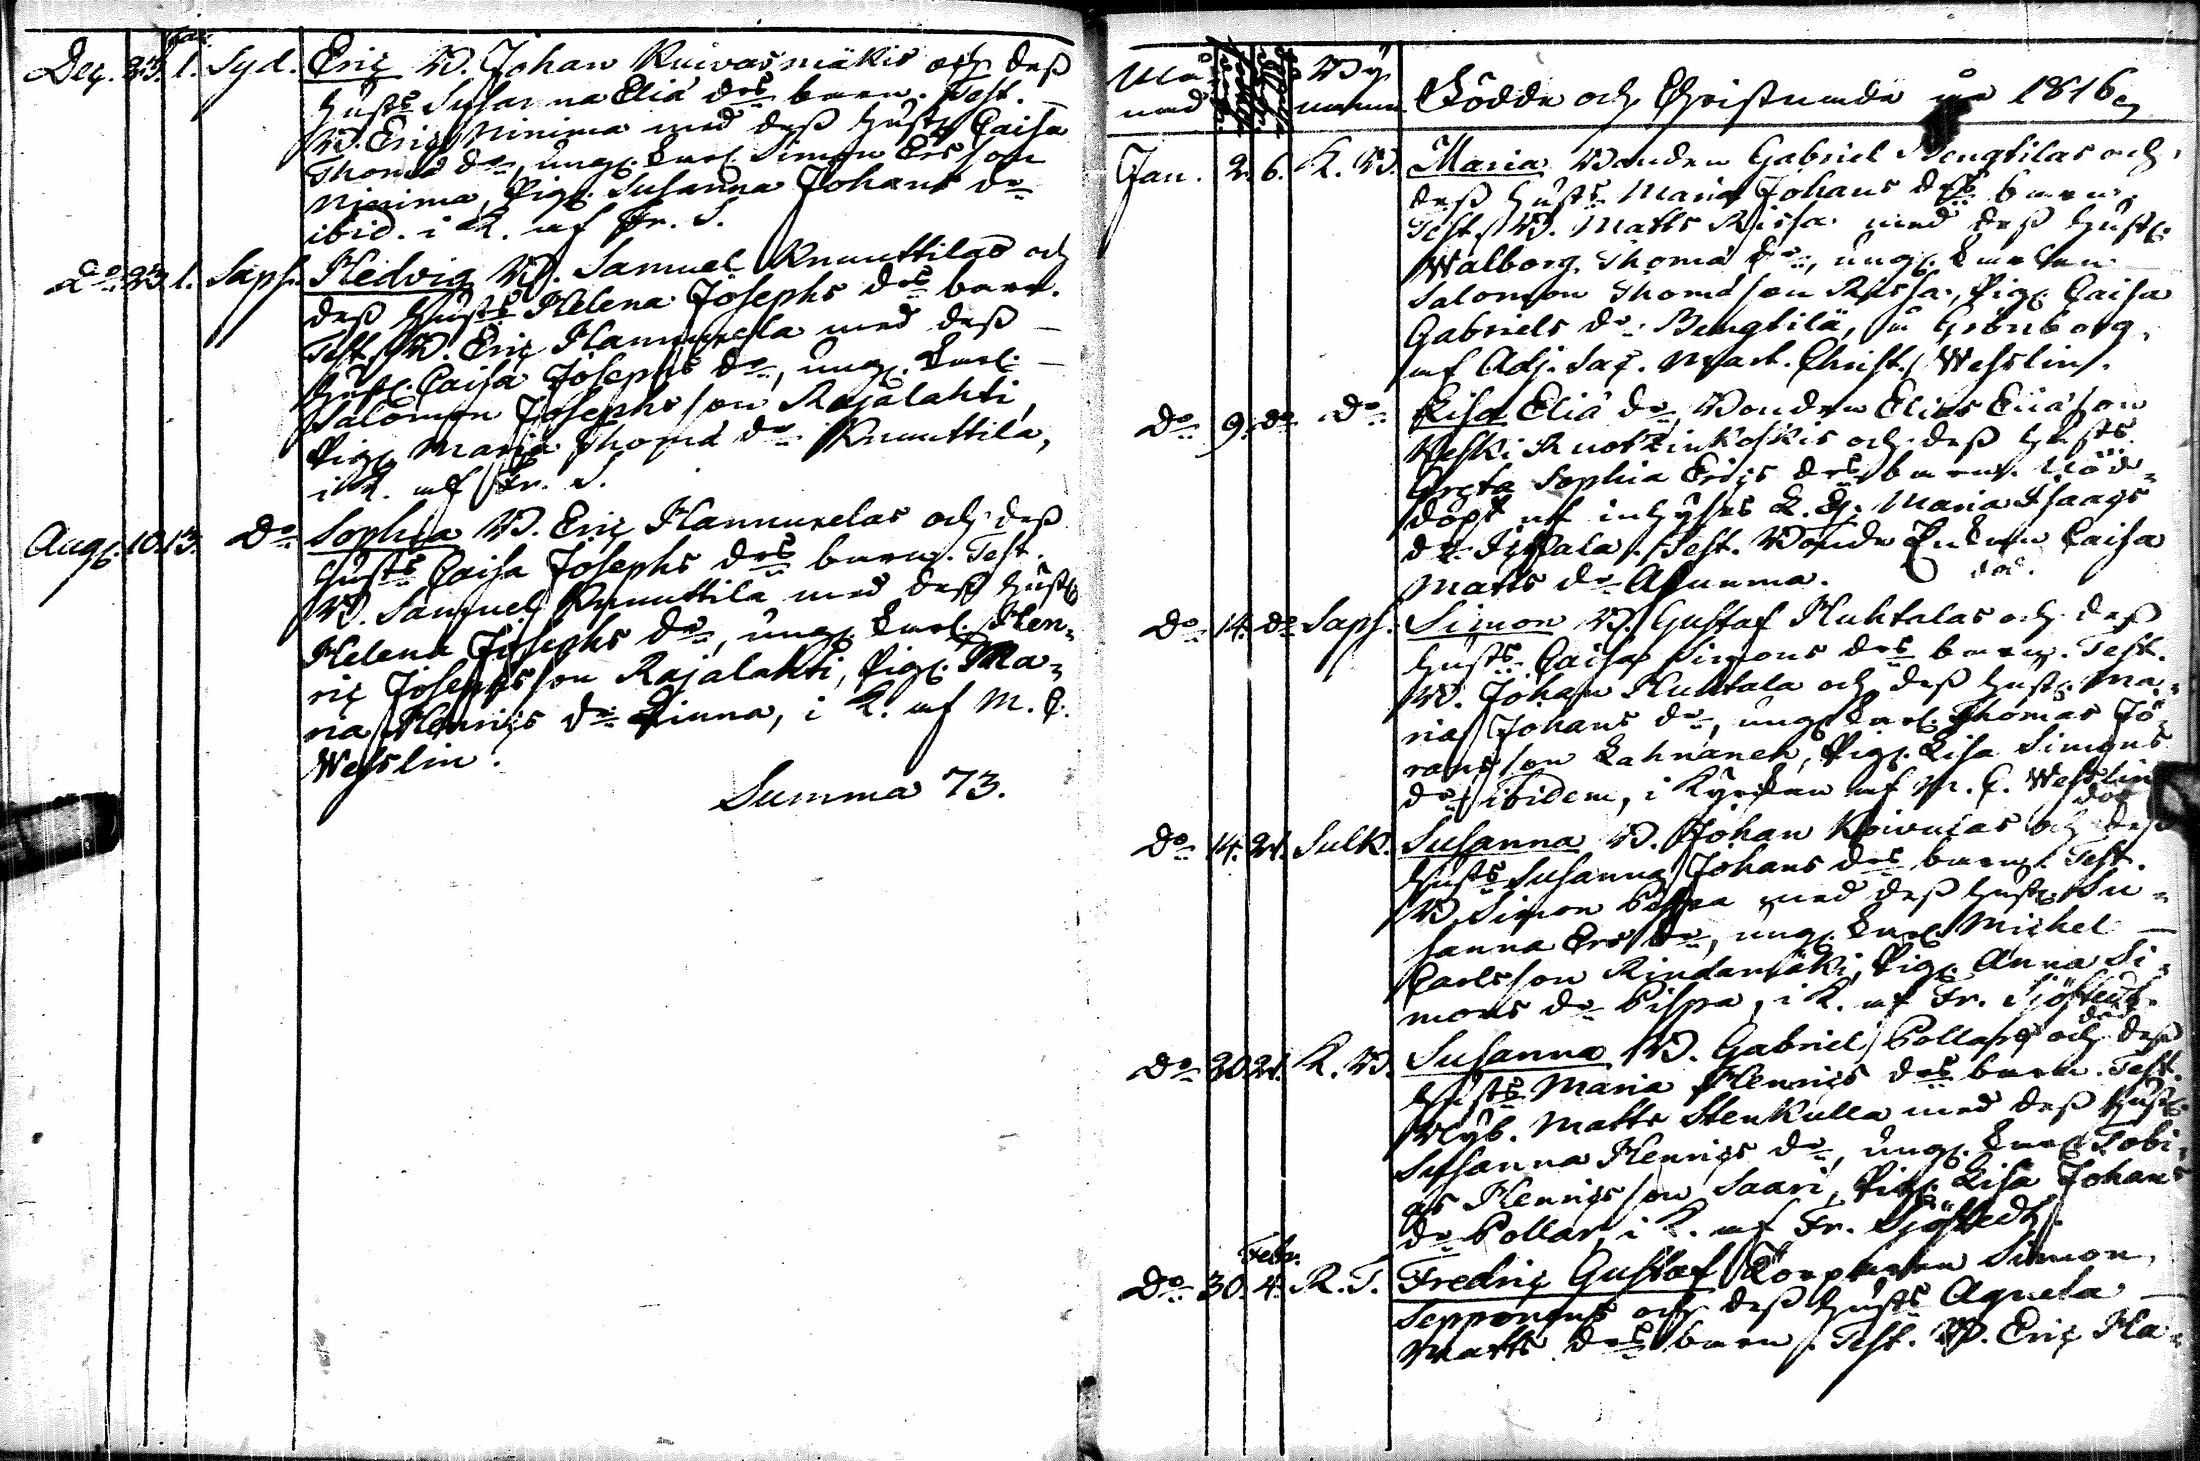 Jan.
Dec. 23. 1. Syd. Eric B. Johan Kuivasmäkis och dess
hust:s Susanna Eliæ d:rs barn. Test.
B. Eric Ninima med dess hustr. Caisa
Thomæ d:r, ung. karl. Simon Ersson
Ninima, Pig. Susanna Johans d:r
ibid. i K. af Fr. S.
D:o 23. 1. Saps. Hedvig B. Samuel Knuuttilas och
dess hust:s Helena Josephs d:rs barn.
Test. B. Eric Hannuxela med dess
hustr. Caisa Josephs d:r, ung. karl.
Salomon Josephsson Rajalahti,
Pig. Maria Thomæ d:r Knuuttila,
i K. af Fr. S.
Aug. 10. 13. D:o Sophia B. Eric Hannuxelas och dess
hust:s Caisa Josephs d:rs barn. Test.
B. Samuel Knuuttila med dess hustr.
Helena Josephs d:r, ung. karl. Hen-
ric Josephsson Rajalahti, Pig. Ma-
ria Henrics d:r Pinna, i K. af M. C.
Wesslin.
Summa 73.
Må-
nad By
namn Födde och Christnade år 1816
Jan. 2. 6. K. B. Maria Bonden Gabriel Bengtilas och
dess hust:s Maria Johans d:rs barn,
Test. B. Matts Rissa med dess hustr.
Walborg Thomæ d:r, ung. karlen
Salomon Thomæson Rissa, Pig. Caisa
Gabriels d:r Bengtilä, i Grönborg,
af Adj. Sac. Mart. Christ. Wesslin.
D:o 9. d:o D:o Lisa Eliæ d:r Bonden Elias Eliæson
Keski Ruotzinkoskis och dess hust:s
Greta Sophia Erics d:rs barn. Nöd-
döpt af inhyses E. Q. Maria Isaacs
d:r . Test. Bonde Enkan Caisa
Matts d:r Asunma. död.
D:o 14. d:o Saps. Simon B. Gustaf Huhtalas och dess
hust:s Caisa Simons d:rs barn. Test.
B. Johan Huhtala och dess hustr. Ma-
ria Johans d:r, ung. karl. Thomas Jö-
ransson Lahnanen, Pig. Lisa Simons
d:r ibidem, i Kyrkan af M. C. Wesslin
död
D:o 14. 21. Sulk. Susanna B. Johan Koivulas och dess
hust:s Susanna Johans d:rs barn. Test.
B. Simon Pispa med dess hustr. Su-
sanna Ers d:r, ung. karl. Michel
Carlsson Rindamäki, Pig. Anna Si-
mons d:r Pispa, i K. af Fr. Sjöstedt.
död
D:o 20. 21. K. B. Susanna B. Gabriel Pollars och dess
hust:s Maria Henrics d:rs barn. Test.
Nyb. Matts Stenkulla med dess hustr.
Susanna Henrics d:r, ung. karl. Tobi-
as Henricsson Saari, Pig. Lisa Johans
d:r Pollar, i K. af Fr. Sjöstedt.
Febr.
D:o 30. 4. R. T. Fredric Gustaf Torparen Simon
Sepponens och dess hust:s Agneta
Matts d:rs barn. Test. B. Eric Ha-